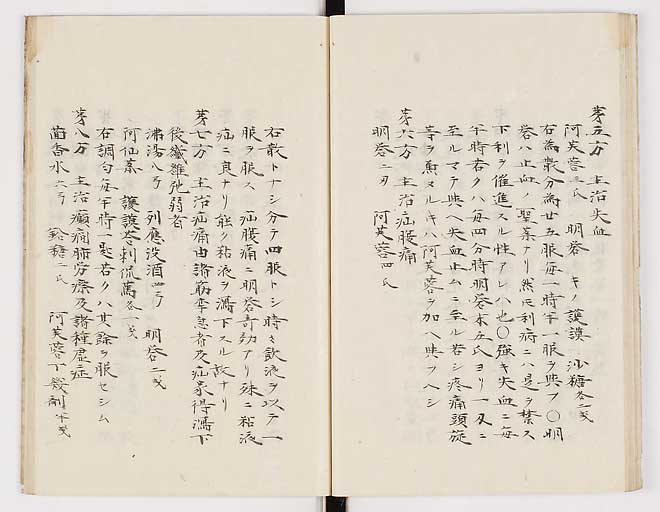 第五方 主治失血
阿芙蓉三氏 明礬 キノ 護謨 沙糖各二戔
右為散分為廿五服每一時半一服ヲ與フ〇明
礬ハ止血ノ聖薬ナリ然𪜈利病ニハ是ヲ禁ス
下利ヲ催進スル性アレハ也〇強キ失血ニ每
半時若クハ每四分時明礬末五氏ヨリ一刄ニ
至ルマテ與ヘ失血止ムニ至ル若シ疼痛頭旋
等ヲ兼ヌルキハ阿芙蓉ヲ加ヘ與フヘシ
第六方 主治疝腹痛
明礬二刄 阿芙蓉四氏
右散トナシ分テ四服トシ時々飲液ヲ以テ一
服ヲ服ス 疝腹痛ニ明礬奇効アリ殊ニ粘液
疝ニ良ナリ能ク粘液ヲ瀉下スル故ナリ
第七方 主治疝痛由諸筋挛急者及疝家得瀉下
後纖維弛弱者
沸湯八弓 列應没酒四弓 明礬二戔
阿仙薬 護謨 各一戔
右調匀每半時一匙若クハ其餘ヲ服セシム
第八方 主治癲癇肺労瘵及諸種虛症
茴香水六弓 鉛糖二氏 阿芙蓉丁幾剤半戔